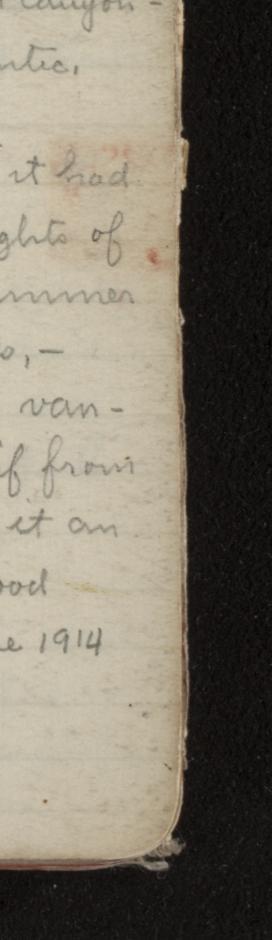 canyon-
ntic.
it had
ghts of
ummer
s, –
van-
if from
it an
ood
e 1914